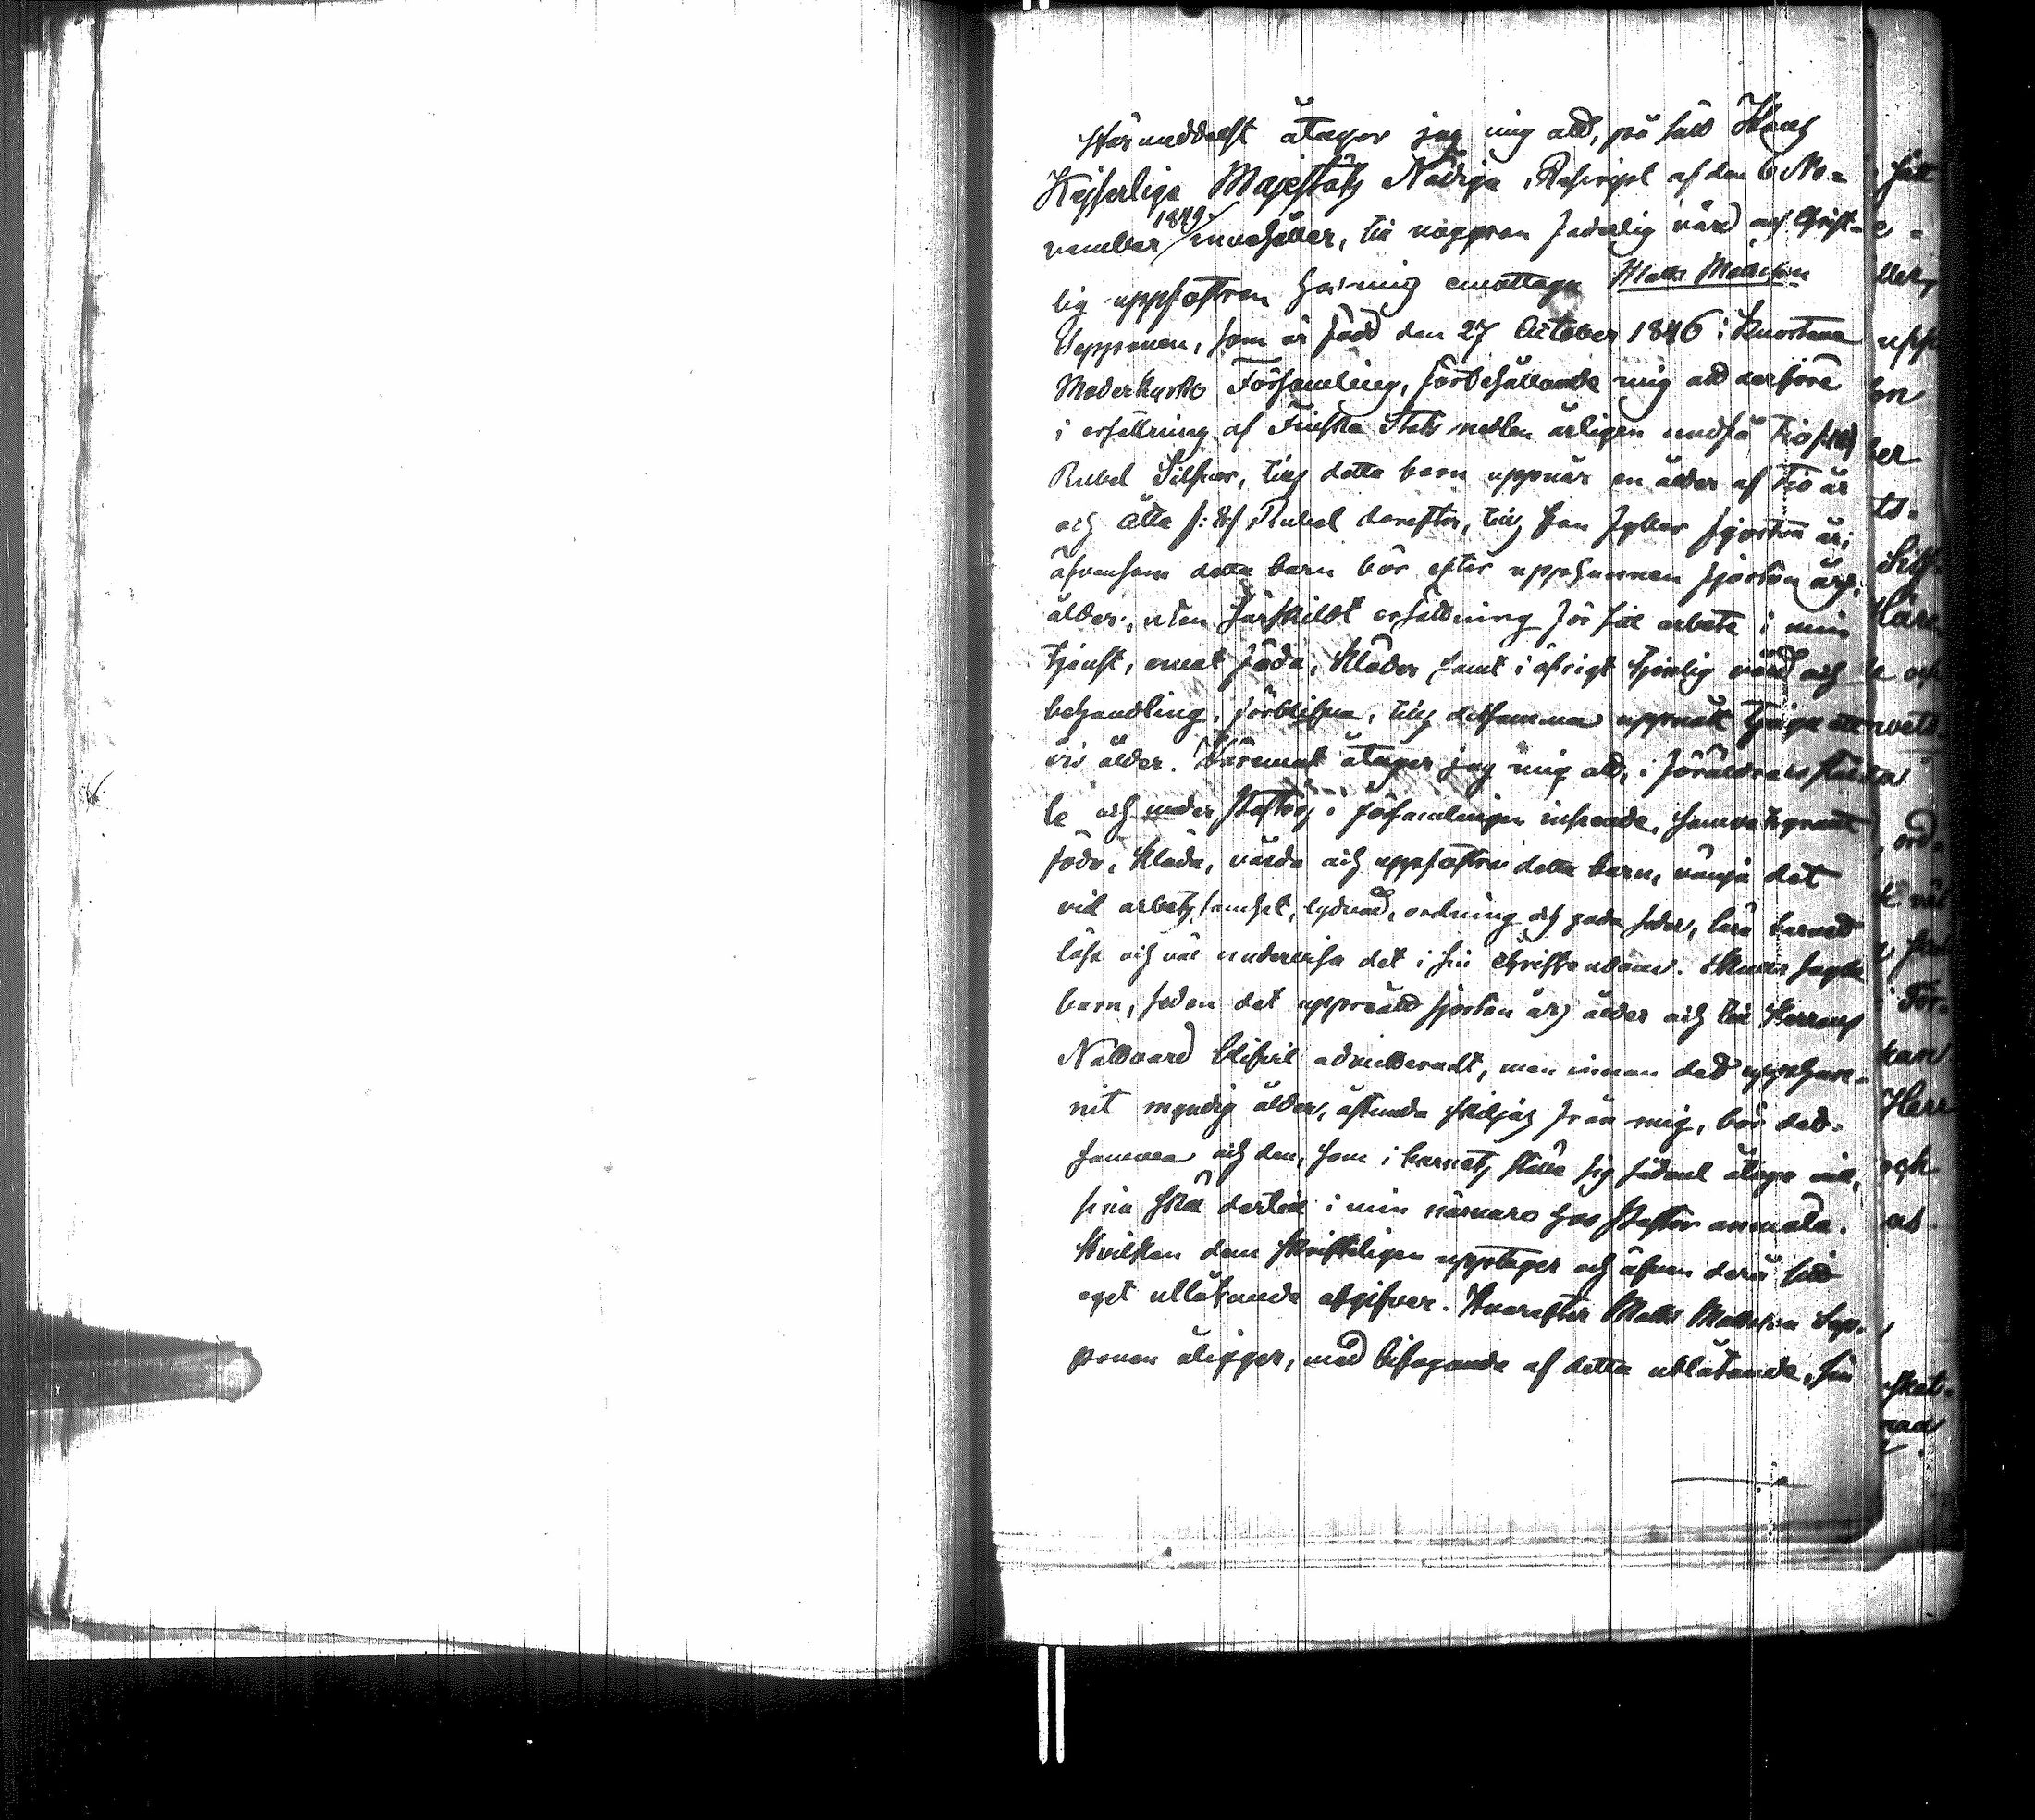 Härmeddelst åtager jag mig att, på sätt Hans
Kejserliga Majestäts Nådiga Rescript af den 6 No-
vember 1849 innehåller, till noggran faderlig vård och Christ-
lig uppfostran hos mig emottaga Matts Mattsson
Sepponen, som är född den 27 October 1846 i Kuortane
Moderkyrko Församling, förbehållande mig att derföre
i ersättning af Finska Stats medlen årligen undfå Tio /:10:/
Rubel Silfver, tills detta barn uppnår en ålder af Tio år
och Åtta /:8:/ Rubel derefter, till dess han fyller fjorton år;
äfvensom detta barn bör efter upphunnen fjorton års
ålder, utan särskildt ersättning för sitt arbete i min
tjenst, emot föda, kläder samt i öfrigt tjenlig vård och
behandling, förblifva, tills detsamma uppnått tjugu ett
års ålder. Häremot åtager jag mig att, i föräldrars ställe
och under Pastors i församlingen inseende, samvetsgrant
föda, kläda, vårda och uppfostra detta barn, vänja det
vid arbetsamhet, lydnad, ordning och goda seder, lära barnet
läsa och väl undervisa det i sin Christendom. Skulle sagde
barn, sedan det uppnått fjorton års ålder och till Herrans
Nattvard blifvit admitteradt, men innan det upphun-
nit myndig ålder, åstunda skiljas från mig, bör det-
samma och den, som i barnets ställe sig sådant åtaga vill,
sina skäl dertill i min närvaro hos Pastor anmäla.
Hvilken dem skrifteligen upptager och äfven derå sitt
eget utlåtande afgifver. Hvarefter Matts Mattsson Sep-
ponen åligger, med bifogande af detta utlåtande, sin